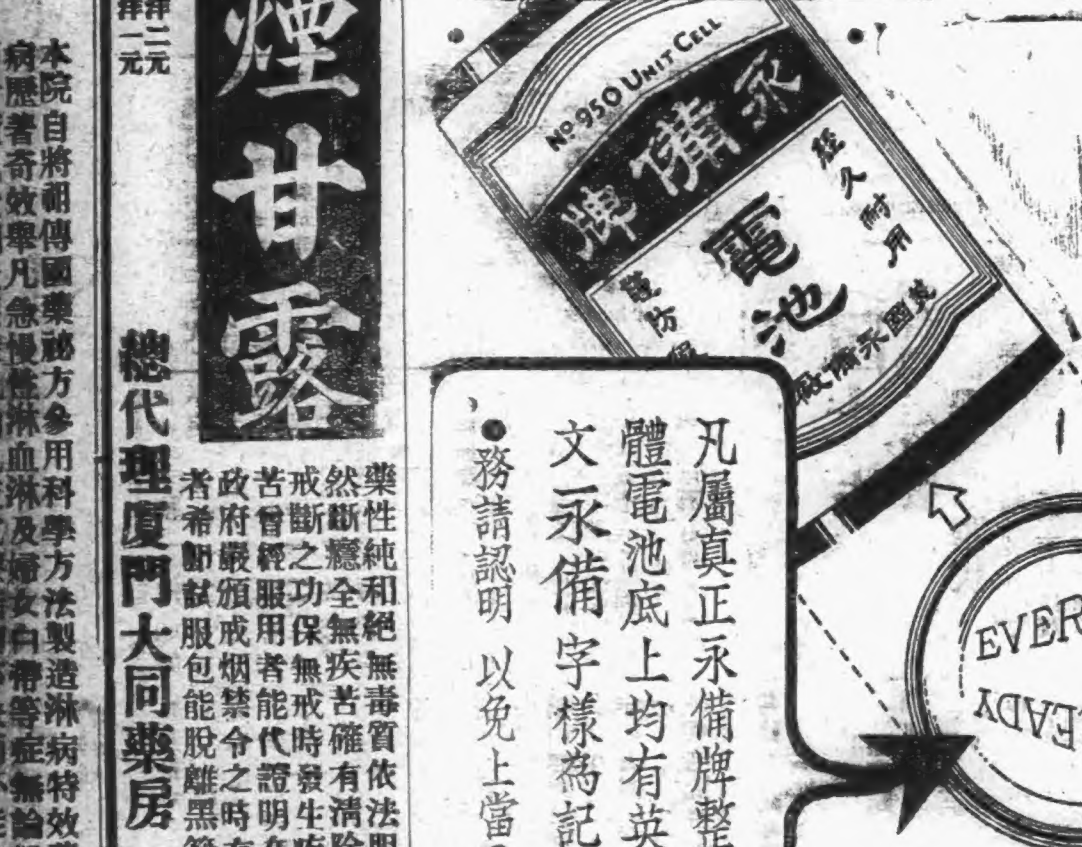 No 950 UNIT CELL
永備牌
經久耐用
電池
謹防
英國永備廠
EVER
EADY
凡屬真正永備牌整
體電池底上均有英
文永備字樣為記
●務請認明 以免上當
煙甘露
藥性純和絕無毒質依法服
然斷癮全無疾苦確有清除
戒斷之功保無戒時發生
苦曾經服用者能代證明
政府嚴頒戒烟禁令之時
者希即試服包能脫離黑
洋二元
洋一元
總代理廈門大同藥房
本院自將祖傳國藥祕方參用科學方法製造淋病特效
病歷著奇效舉凡急慢性淋血淋及婦女白帶等症無論